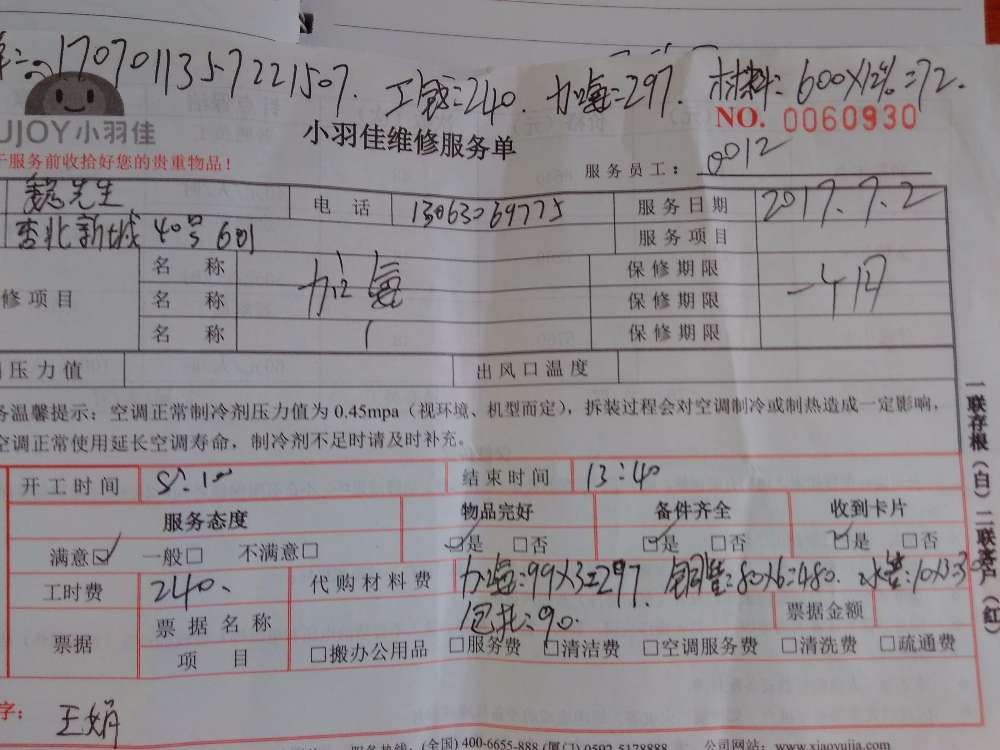 1707011357221507. 工钱:240. 加氟:297. 材料:600×12%=72.
UJOY小羽佳
NO. 0060930
小羽佳维修服务单
服务前收拾好您的贵重物品!
服务员工: 0012
魏先生 电话 13063069775 服务日期 2017.7.2
杏北新城 40号 601 服务项目
修项目 名称 加氟 保修期限 一个月
名称 保修期限
名称 保修期限
压力值 出风口温度
务温馨提示:空调正常制冷剂压力值为 0.45mpa(视环境、机型而定),拆装过程会对空调制冷或制热造成一定影响,
空调正常使用延长空调寿命,制冷剂不足时请及时补充。
开工时间 8:10 结束时间 13:40
服务态度 物品完好 备件齐全 收到卡片
满意☑ 一般□ 不满意□ ☑是 □否 ☑是 □否 ☑是 □否
工时费 240. 代购材料费 加氟:99×3=297. 铜管:80×6=480. 水管:10×3=30
包扎:90.
票据 票据名称 票据金额
项目 □搬办公用品 □服务费 □清洁费 □空调服务费 □清洗费 □疏通费
字: 王娟
服务热线:(全国) 400-6655-888 (厦门) 0592-5178888 公司网站:www.xiaoyujia.com
一联存根(白)二联客户(红)